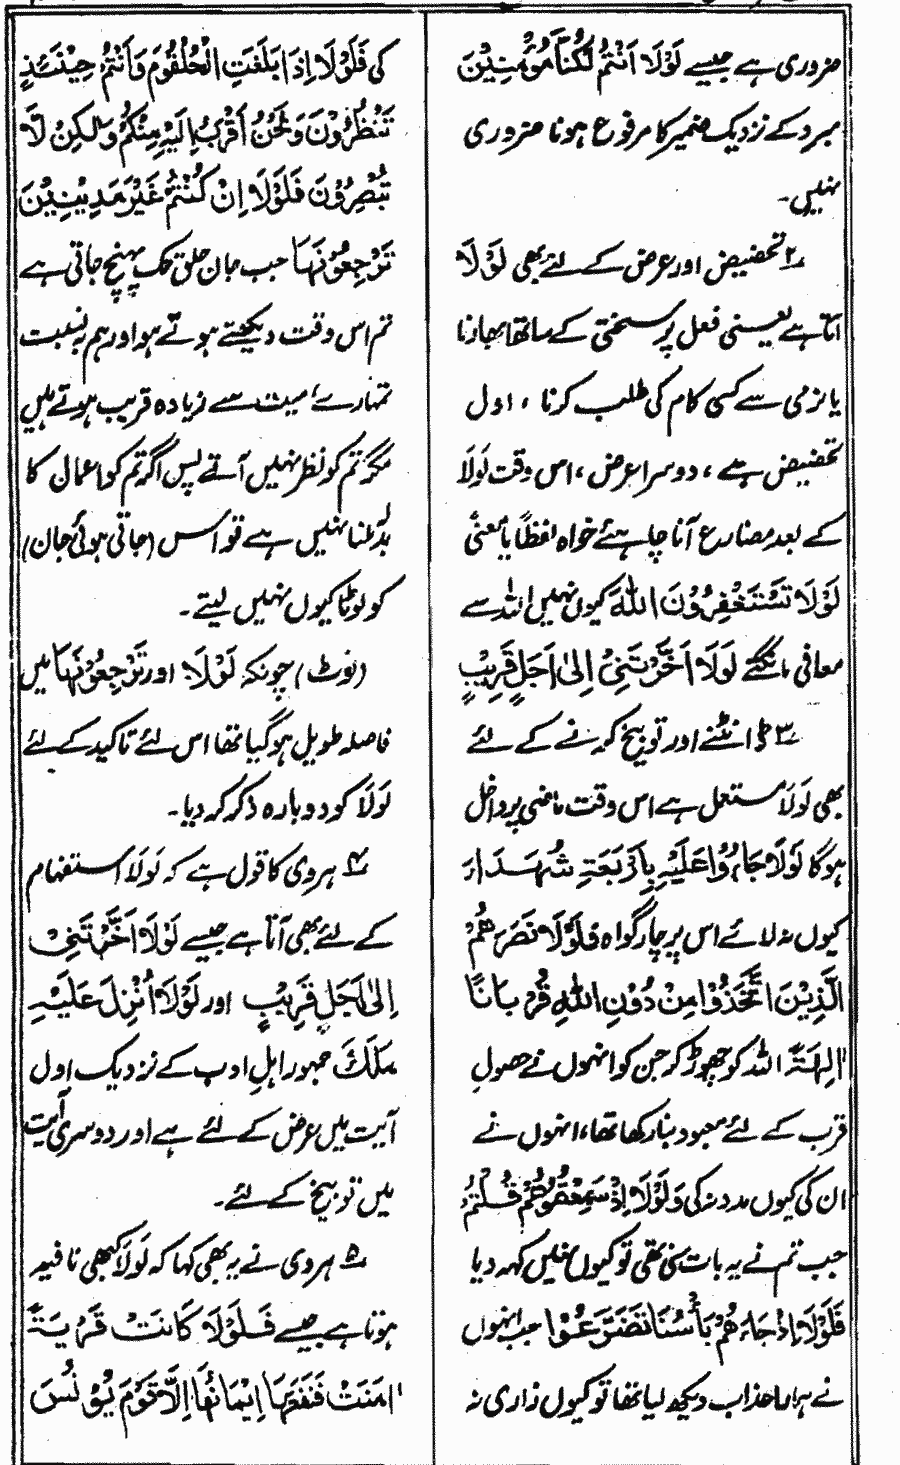 ضروری ہے جیسے لَوْلَا اَنْتُمْ لَكُنَّا مُؤْمِنِيْنَ
مبرد کے نزدیک ضمیر کا مرفوع ہونا ضروری
نہیں۔
۲؎ تحضیض اور عرض کے لئے بھی لَوْلَا
آتا ہے یعنی فعل پر سختی کے ساتھ ابھارنا
یا نرمی سے کسی کام کی طلب کرنا ، اول
تحضیض ہے ، دوسرا عرض ، اس وقت لَوْلَا
کے بعد مضارع آنا چاہئے خواہ لفظًا یا معنًی
لَوْلَا تَسْتَغْفِرُوْنَ اللّٰهَ کیوں نہیں اللہ سے
معافی مانگتے لَوْلَا اَخَّرْتَنِيْ اِلٰى اَجَلٍ قَرِيْبٍ
۳؎ ڈانٹنے اور توبیخ کرنے کے لئے
بھی لَوْلَا مستعمل ہے اس وقت ماضی پر داخل
ہوگا لَوْلَا جَاءُوْا عَلَيْهِ بِاَرْبَعَةِ شُهَدَاءَ
کیوں نہ لائے اس پر چار گواہ فَلَوْلَا نَصَرَهُمُ
الَّذِيْنَ اتَّخَذُوْا مِنْ دُوْنِ اللّٰهِ قُرْبَانًا
اٰلِهَةً اللہ کو چھوڑ کر جن کو انہوں نے حصولِ
قرب کے لئے معبود بنا رکھا تھا، انہوں نے
ان کی کیوں مدد نہ کی وَلَوْلَا اِذْ سَمِعْتُمُوْهُ قُلْتُمْ
جب تم نے یہ بات سنی تھی تو کیوں نہیں کہہ دیا
فَلَوْلَا اِذْ جَاءَهُمْ بَأْسُنَا تَضَرَّعُوْا جب انہوں
نے ہمارا عذاب دیکھ لیا تھا تو کیوں زاری نہ
کی فَلَوْلَا اِذَا بَلَغَتِ الْحُلْقُوْمَ وَاَنْتُمْ حِيْنَئِذٍ
تَنْظُرُوْنَ وَنَحْنُ اَقْرَبُ اِلَيْهِ مِنْكُمْ وَلٰكِنْ لَّا
تُبْصِرُوْنَ فَلَوْلَا اِنْ كُنْتُمْ غَيْرَ مَدِيْنِيْنَ
تَرْجِعُوْنَهَا جب جان حلق تک پہنچ جاتی ہے
تم اس وقت دیکھتے ہوتے ہو اور ہم بہ نسبت
تمہارے میت سے زیادہ قریب ہوتے ہیں
مگر تم کو نظر نہیں آتے پس اگر تم کو اعمال کا
بدلہ ملنا نہیں ہے تو اس (جاتی ہوئی جان)
کو لوٹا کیوں نہیں لیتے۔
(نوٹ) چونکہ لَوْلَا اور تَرْجِعُوْنَهَا میں
فاصلہ طویل ہوگیا تھا اس لئے تاکید کے لئے
لَوْلَا کو دوبارہ ذکر کر دیا۔
۴؎ ہروی کا قول ہے کہ لَوْلَا استفہام
کے لئے بھی آتا ہے جیسے لَوْلَا اَخَّرْتَنِيْ
اِلٰى اَجَلٍ قَرِيْبٍ اور لَوْلَا اُنْزِلَ عَلَيْهِ
مَلَكٌ جمہور اہلِ ادب کے نزدیک اول
آیت میں عرض کے لئے ہے اور دوسری آیت
میں توبیخ کے لئے۔
۵؎ ہروی نے یہ بھی کہا کہ لَوْلَا کبھی نافیہ
ہوتا ہے جیسے فَلَوْلَا كَانَتْ قَرْيَةٌ
اٰمَنَتْ فَنَفَعَهَا اِيْمَانُهَا اِلَّا قَوْمَ يُوْنُسَ